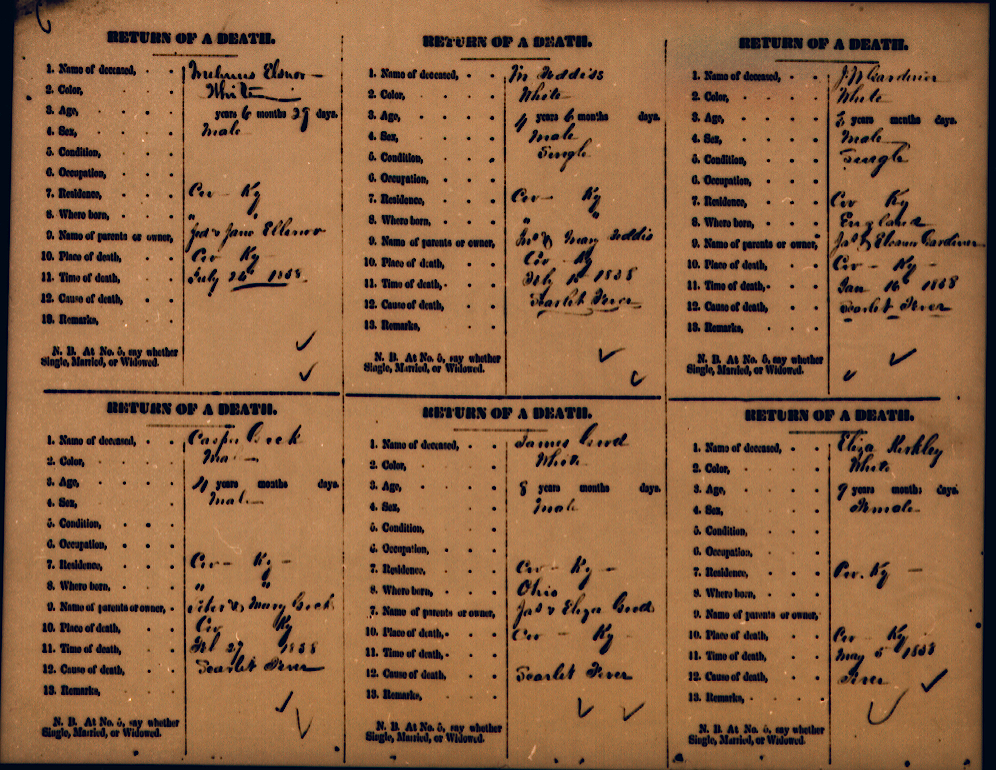 RETURN OF A DEATH.
1. Name of deceased, Elsnor
2. Color, White
3. Age, years 6 months 29 days.
4. Sex, Male
5. Condition,
6. Occupation,
7. Residence, Cov Ky
8. Where born, " "
9. Name of parents or owner, & Jane Ellsnor
10. Place of death, Cov Ky
11. Time of death, July 26th 1858
12. Cause of death,
13. Remarks,
N. B. At No. 5, say whether
Single, Married, or Widowed.
RETURN OF A DEATH.
1. Name of deceased, Teddiss
2. Color, White
3. Age, 4 years 6 months days.
4. Sex, Male
5. Condition, Single
6. Occupation,
7. Residence, Cov Ky
8. Where born, " "
9. Name of parents or owner, & Mary Teddis
10. Place of death, Cov Ky
11. Time of death, Feby 1858
12. Cause of death, Scarlet Fever
13. Remarks,
N. B. At No. 5, say whether
Single, Married, or Widowed.
RETURN OF A DEATH.
1. Name of deceased, J. W. Gardiner
2. Color, White
3. Age, years months days.
4. Sex, Male
5. Condition, Single
6. Occupation,
7. Residence, Cov Ky
8. Where born, England
9. Name of parents or owner, Jas & Gardiner
10. Place of death, Cov Ky
11. Time of death, Jan 16 1858
12. Cause of death, Scarlet Fever
13. Remarks,
N. B. At No. 5, say whether
Single, Married, or Widowed.
RETURN OF A DEATH.
1. Name of deceased, Casper
2. Color,
3. Age, 4 years months days.
4. Sex, Male
5. Condition,
6. Occupation,
7. Residence, Cov Ky
8. Where born, " "
9. Name of parents or owner, Peter & Mary
10. Place of death, Cov Ky
11. Time of death, Feb 27 1858
12. Cause of death, Scarlet Fever
13. Remarks,
N. B. At No. 5, say whether
Single, Married, or Widowed.
RETURN OF A DEATH.
1. Name of deceased, James
2. Color, White
3. Age, 8 years months days.
4. Sex, Male
5. Condition,
6. Occupation,
7. Residence, Cov Ky
8. Where born, Ohio
7. Name of parents or owner, Jas & Eliza
10. Place of death, Cov Ky
11. Time of death,
12. Cause of death, Scarlet Fever
13. Remarks,
N. B. At No. 5, say whether
Single, Married, or Widowed.
RETURN OF A DEATH.
1. Name of deceased, Eliza Kirkley
2. Color, White
3. Age, 9 years months days.
4. Sex, Female
5. Condition,
6. Occupation,
7. Residence, Cov. Ky
8. Where born,
9. Name of parents or owner,
10. Place of death, Cov Ky
11. Time of death, May 5 1858
12. Cause of death, Fever
13. Remarks,
N. B. At No. 5, say whether
Single, Married, or Widowed.